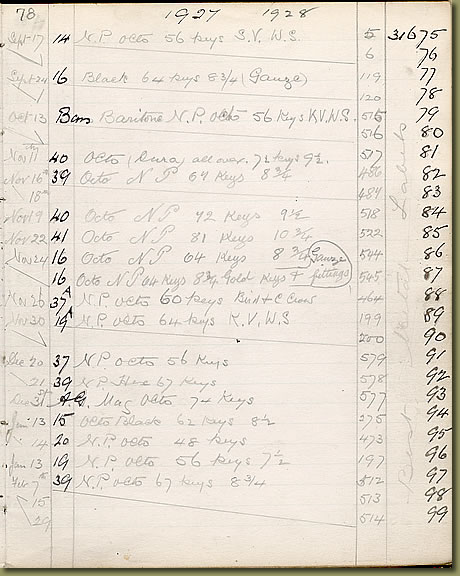 78 1927 1928
Sept 17 14 N.P. Octo 56 keys S.V. W.S. 5 31675
6 76
Sept 24 16 Black 64 keys 8 3/4 (Gauze) 119 77
120 78
Oct 13 Bars Baritone N.P. Octo 56 Keys K.V.W.S. 515 79
516 80
Nov 11th 40 Octo (Dura) all over. 72 keys 9 1/2. 517 81
Nov 16th 39 Octo N P 67 Keys 8 3/4 486 82
18th 487 83
Nov 19 40 Octo N P 72 Keys 9 1/2 518 84
Nov 22 41 Octo N P 81 Keys 10 3/4 522 85
Nov 24 16 Octo N P 64 Keys 8 3/4 Gauze 544 86
16 Octo N P 64 Keys 8 3/4 Gold Keys + fittings 545 87
Nov 26 37A N.P. Octo 60 keys 464 88
Nov 30 19A N.P. Octo 64 keys K.V.W.S 199 89
200 90
Dec 20 37 N.P. Octo 56 Keys 579 91
21 39 N.P. Hex 67 Keys 578 92
Dec 31st Mag Octo 74 Keys 577 93
Jan 13 15 Octo Black 62 Keys 8 1/2 375 94
14 20 N.P. Octo 48 keys 473 95
Jan 13 19 N.P. Octo 56 Keys 7 1/2 197 96
Feb 7th 39 N.P. Octo 67 Keys 8 3/4 512 97
15 513 98
29 514 99
Labels